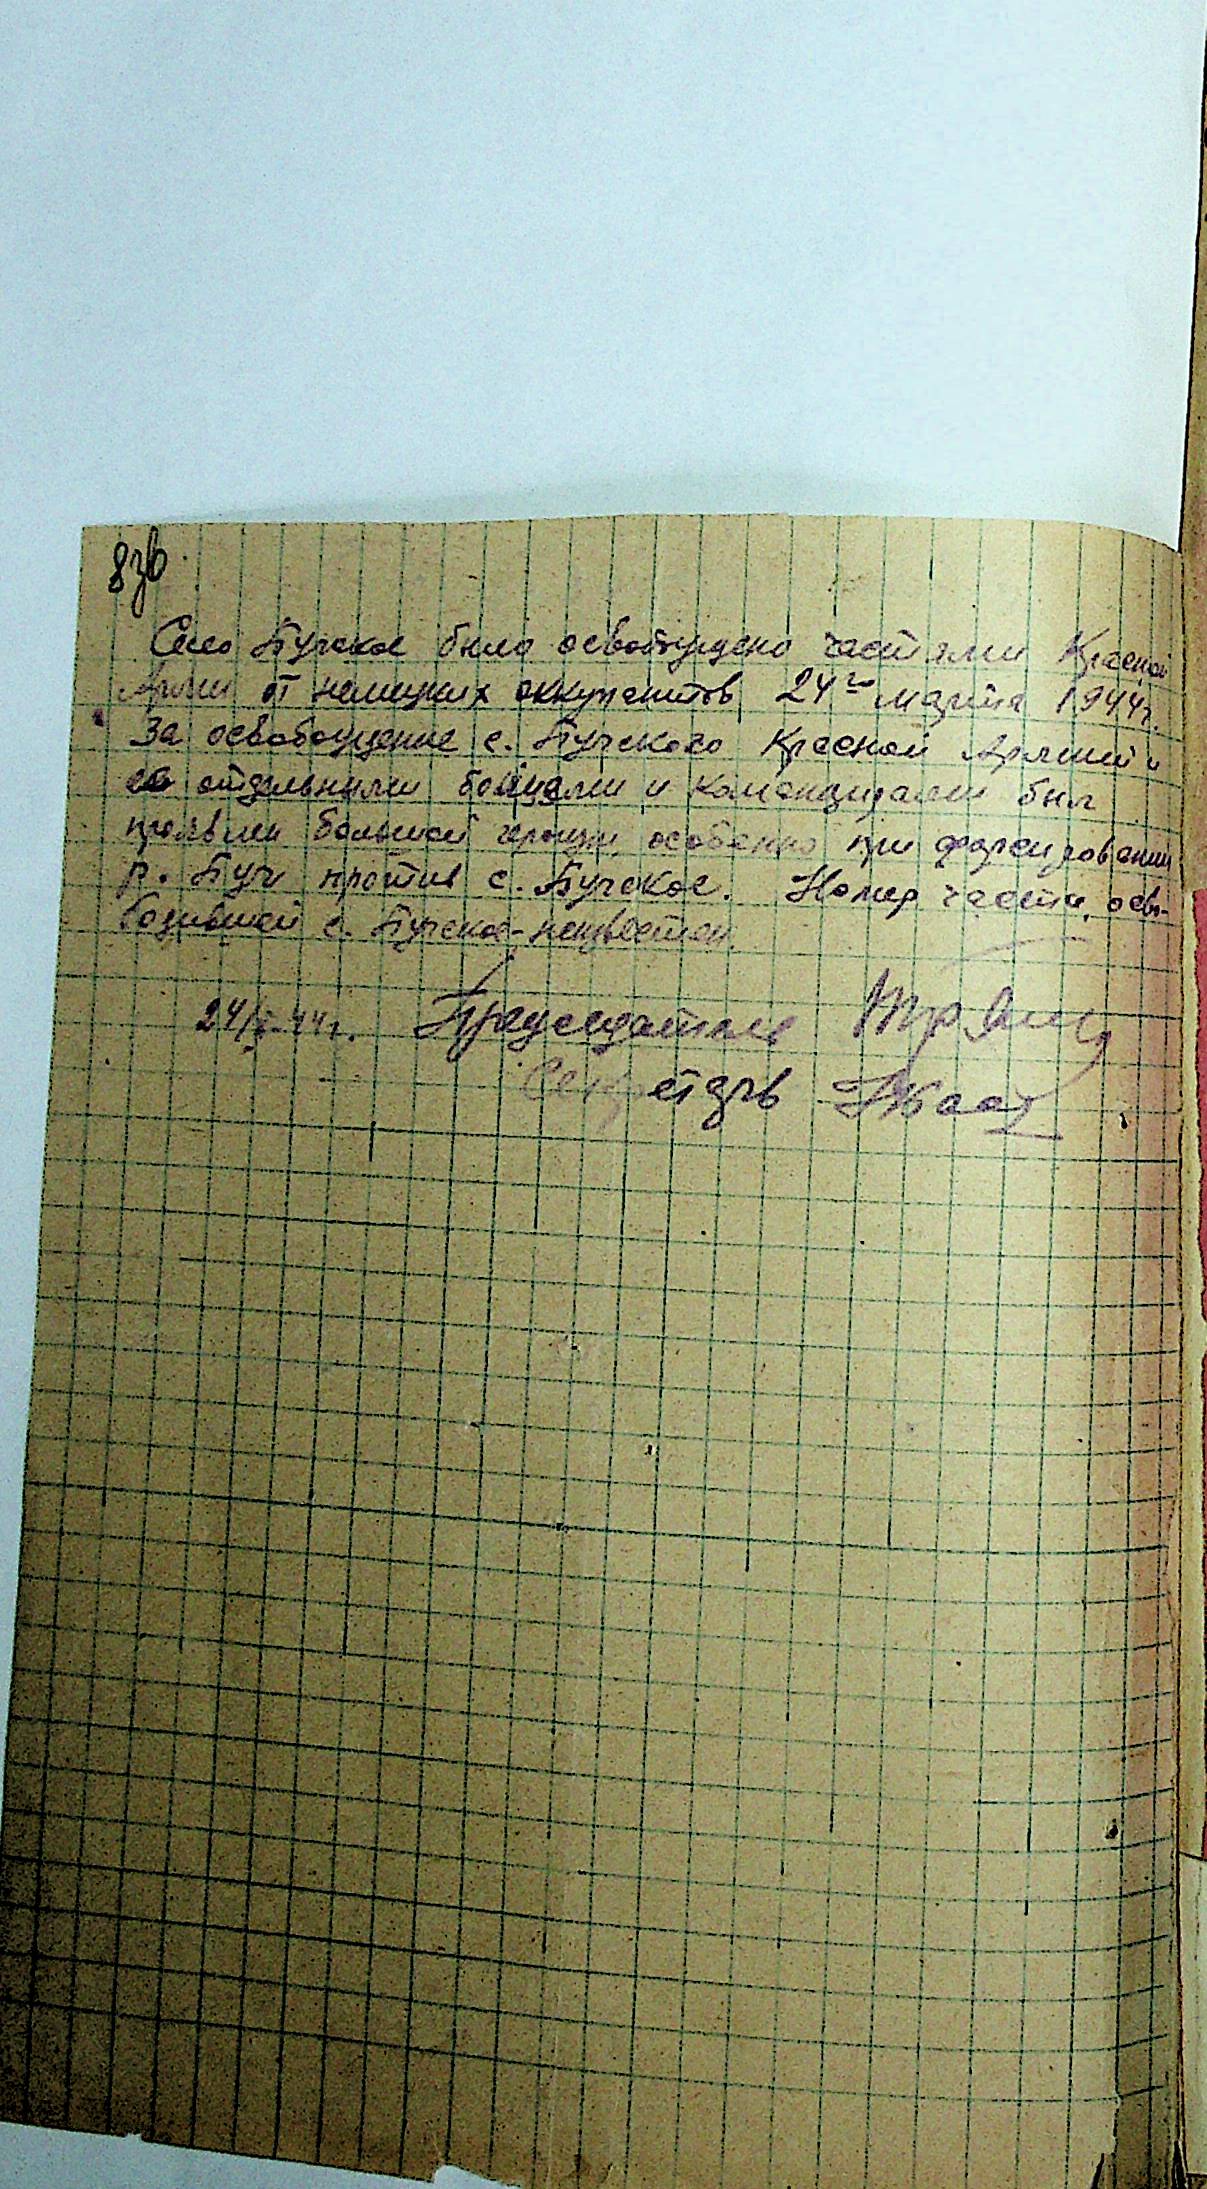 87б
Село Бугское было освобождено частями Красной
Армии от немецких оккупантов 24го марта 1944 г.
За освобождение с. Бугского Красной Армией и
ее отдельными бойцами и командирами был
проявлен большой героизм, особенно при форсировании
р. Буг против с. Бугское. Номер части, осво-
бодившей с. Бугское - неизвестен.
44 г. Председатель
Секретарь